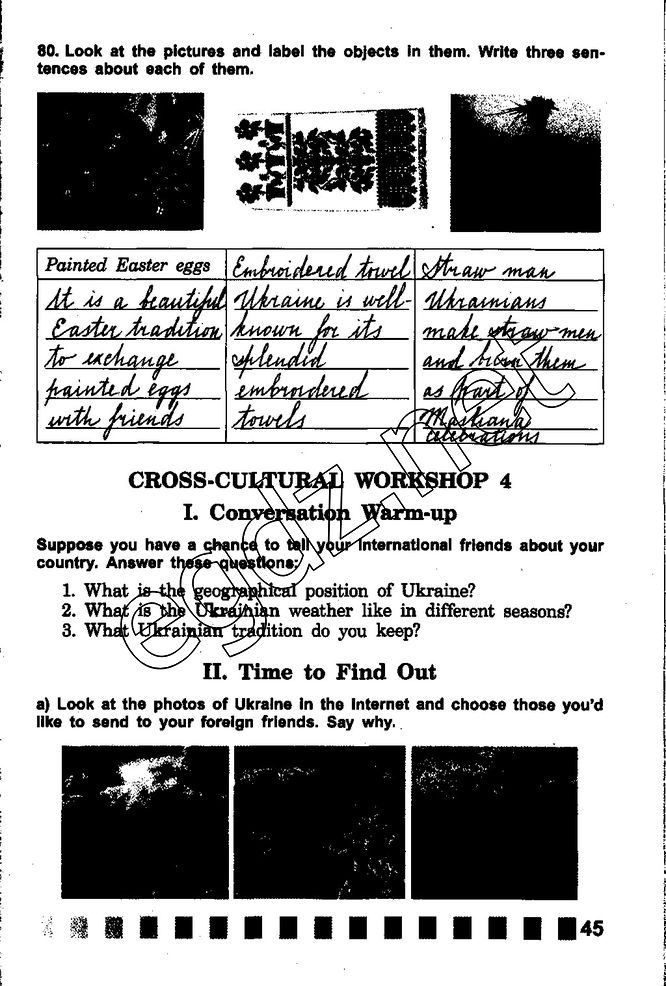 80. Look at the pictures and label the objects in them. Write three sen-
tences about each of them.
Painted Easter eggs
It is a beautiful
Easter tradition
to exchange
painted eggs
with friends
Embroidered towel
Ukraine is well-
known for its
splendid
embroidered
towels
Straw man
Ukrainians
make straw men
and burn them
as part of
Masliana
celebrations
CROSS-CULTURAL WORKSHOP 4
I. Conversation Warm-up
Suppose you have a chance to tell your international friends about your
country. Answer these questions:
1. What is the geographical position of Ukraine?
2. What is the Ukrainian weather like in different seasons?
3. What Ukrainian tradition do you keep?
II. Time to Find Out
a) Look at the photos of Ukraine in the Internet and choose those you'd
like to send to your foreign friends. Say why.
45
egdz.net